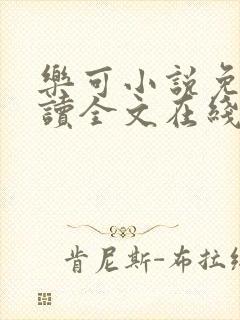 樂可小説免
讀全文在綫
肯尼斯-布拉